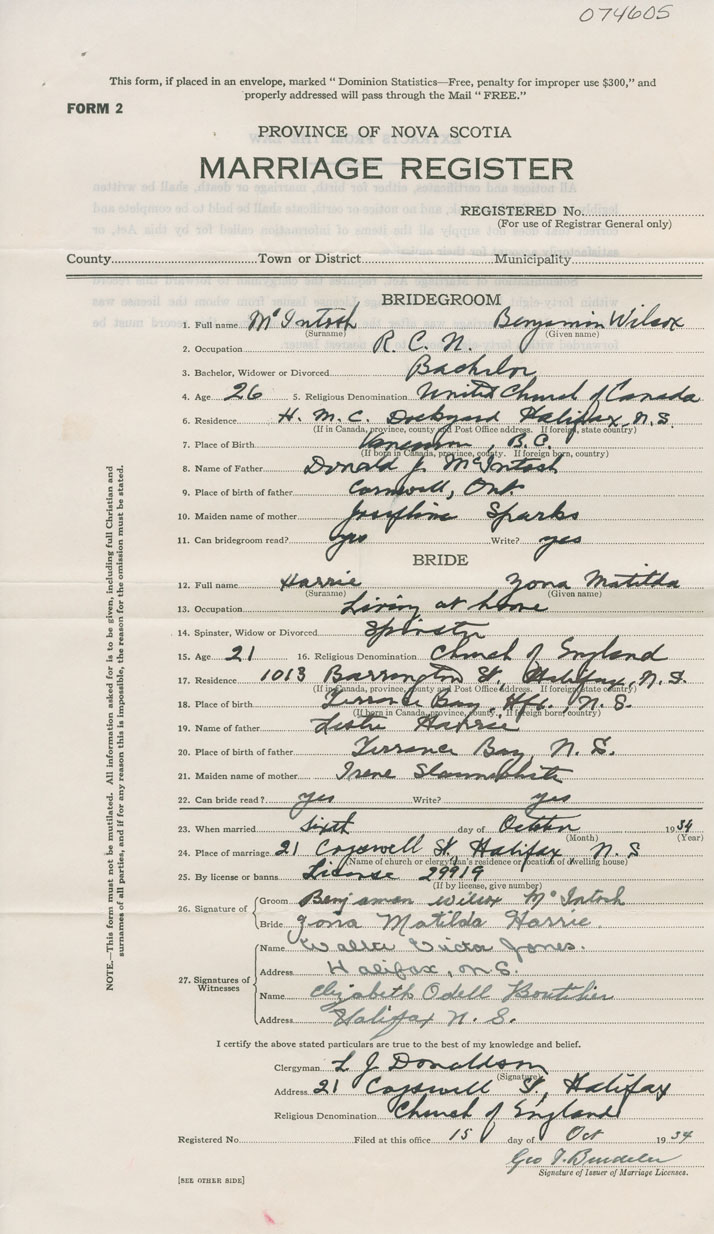 074605
This form, if placed in an envelope, marked "Dominion Statistics—Free, penalty for improper use $300," and
properly addressed will pass through the Mail "FREE."
FORM 2
PROVINCE OF NOVA SCOTIA
MARRIAGE REGISTER
REGISTERED No.
(For use of Registrar General only)
County Town or District Municipality
BRIDEGROOM
1. Full name McIntosh Benjamin Wilsox
(Surname) (Given name)
2. Occupation R. C. N.
3. Bachelor, Widower or Divorced Bachelor
4. Age 26 5. Religious Denomination United Church of Canada
6. Residence H. M. C. Dockyard Halifax, N.S.
(If in Canada, province, county and Post Office address. If foreign, state country)
7. Place of Birth , B.C.
(If born in Canada, province, county. If foreign born, country)
8. Name of Father Donald J. McIntosh
9. Place of birth of father Cornwall, Ont.
10. Maiden name of mother Josephine Sparks
11. Can bridegroom read? yes Write? yes
BRIDE
12. Full name Harrie Zona Matilda
(Surname) (Given name)
13. Occupation Living at home
14. Spinster, Widow or Divorced Spinster
15. Age 21 16. Religious Denomination Church of England
17. Residence 1013 Barrington St., Halifax, N.S.
(If in Canada, province, county and Post Office address. If foreign, state country)
18. Place of birth Terrance Bay, Hfx., N.S.
(If born in Canada, province, county. If foreign born, country)
19. Name of father Leslie Harrie
20. Place of birth of father Terrance Bay, N.S.
21. Maiden name of mother Irene Slaunwhite
22. Can bride read? yes Write? yes
23. When married sixth day of October 1934
(Month) (Year)
24. Place of marriage 21 Cogswell St, Halifax N.S
(Name of church or clergyman's residence or location of dwelling house)
25. By license or banns License 29919
(If by license, give number)
26. Signature of
Groom Benjaman Wilsox McIntosh
Bride Zona Matilda Harrie.
27. Signatures of Witnesses
Name Walter Victor Jones.
Address Halifax, N.S.
Name Elizabeth Odell Boutilier
Address Halifax N.S.
I certify the above stated particulars are true to the best of my knowledge and belief.
Clergyman L J Donaldson
(Signature)
Address 21 Cogswell St, Halifax
Religious Denomination Church of England
Registered No. Filed at this office 15 day of Oct 1934
Geo T.
Signature of Issuer of Marriage Licenses.
[SEE OTHER SIDE]
NOTE.—This form must not be mutilated. All information asked for is to be given, including full Christian and
surnames of all parties, and if for any reason this is impossible, the reason for the omission must be stated.